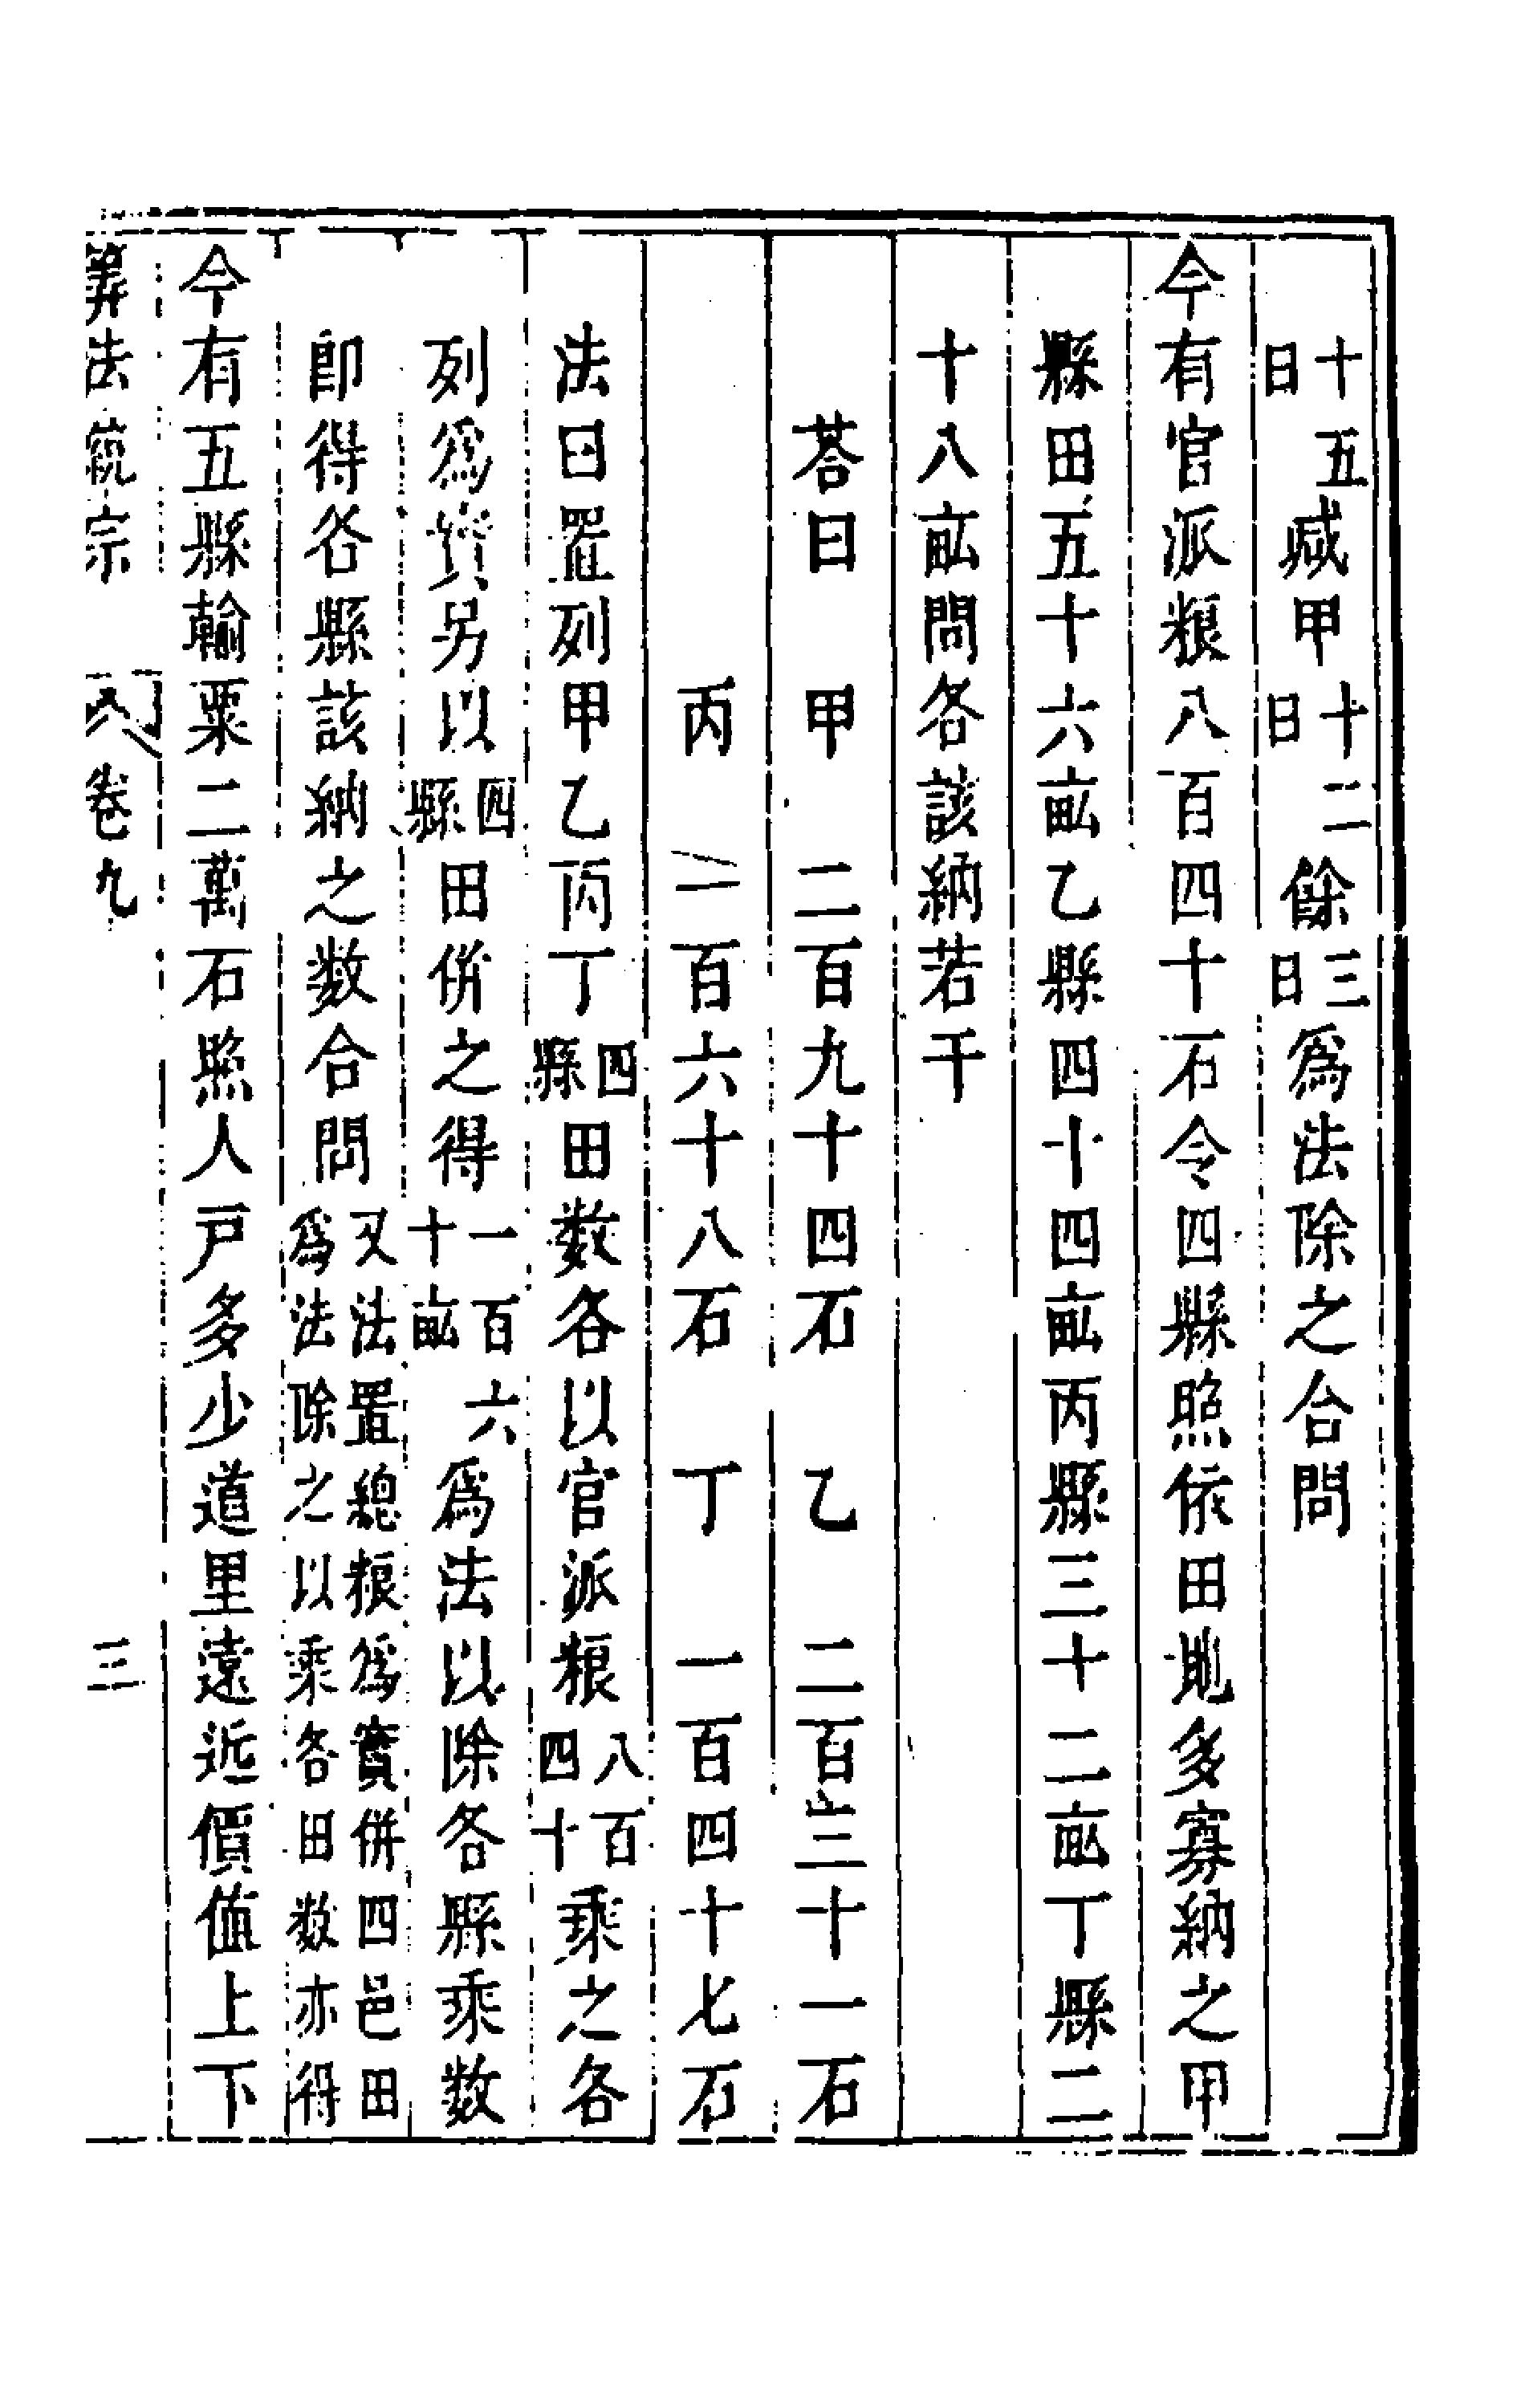 十五日減甲十二日餘三日爲法除之合問
今有官派粮八百四十石令四縣照依田地多寡納之甲
縣田五十六畝乙縣四十四畝丙縣三十二畝丁縣二
十八畝問各該納若干
荅曰甲二百九十四石乙二百三十一石
丙一百六十八石丁一百四十七石
法曰置列甲乙丙丁四縣田数各以官派粮八百四十乘之各
列爲實另以四縣田併之得一百六十畝爲法以除各縣乘数
即得各縣該納之数合問又法置總粮爲實併四邑田爲法除之以乘各田数亦得
今有五縣輸粟二萬石照人戸多少道里遠近價值上下
算法統宗 卷九 三